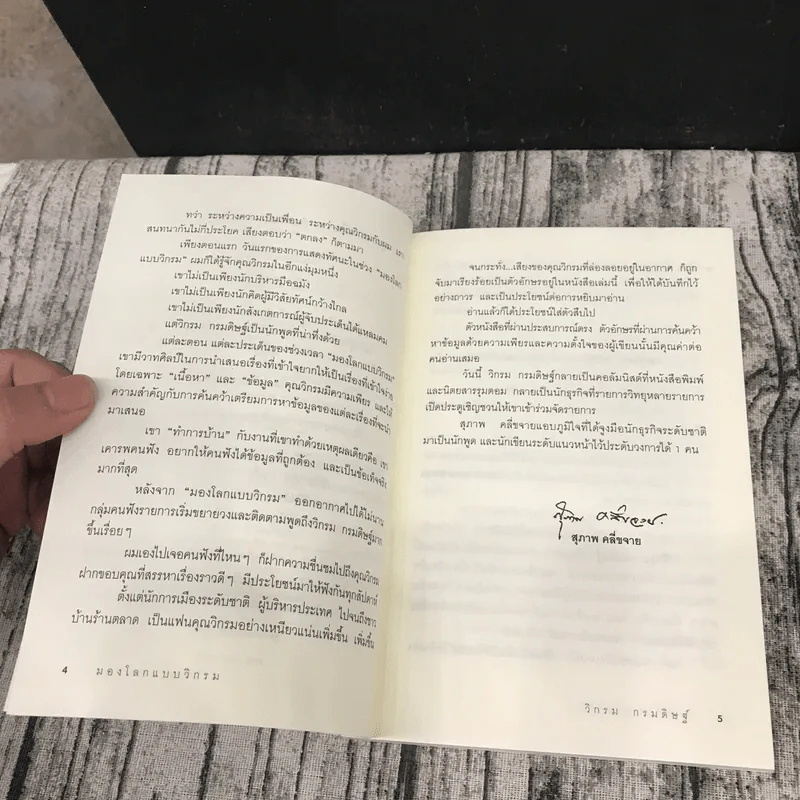 ทว่า ระหว่างความเป็นเพื่อน ระหว่างคุณวิกรมกับผม เรา
สนทนากันไม่กี่ประโยค เสียงตอบว่า "ตกลง" ก็ตามมา
เพียงตอนแรก วันแรกของการแสดงทัศนะในช่วง "มองโลก
แบบวิกรม" ผมก็ได้รู้จักคุณวิกรมในอีกแง่มุมหนึ่ง
เขาไม่เป็นเพียงนักบริหารมือฉมัง
เขาไม่เป็นเพียงนักคิดผู้มีวิสัยทัศน์กว้างไกล
เขาไม่เป็นเพียงนักสังเกตการณ์ผู้จับประเด็นได้แหลมคม
แต่วิกรม กรมดิษฐ์เป็นนักพูดที่น่าทึ่งด้วย
แต่ละตอน แต่ละประเด็นของช่วงเวลา "มองโลกแบบวิกรม"
เขามีวาทศิลป์ในการนำเสนอเรื่องที่เข้าใจยากให้เป็นเรื่องที่เข้าใจง่าย
โดยเฉพาะ "เนื้อหา" และ "ข้อมูล" คุณวิกรมมีความเพียร และให้
ความสำคัญกับการค้นคว้าเตรียมการหาข้อมูลของแต่ละเรื่องที่จะนำ
มาเสนอ
เขา "ทำการบ้าน" กับงานที่เขาทำด้วยเหตุผลเดียวคือ เขา
เคารพคนฟัง อยากให้คนฟังได้ข้อมูลที่ถูกต้อง และเป็นข้อเท็จจริง
มากที่สุด
หลังจาก "มองโลกแบบวิกรม" ออกอากาศไปได้ไม่นาน
กลุ่มคนฟังรายการเริ่มขยายวงและติดตามพูดถึงวิกรม กรมดิษฐ์มาก
ขึ้นเรื่อยๆ
ผมเองไปเจอคนฟังที่ไหนๆ ก็ฝากความชื่นชมไปถึงคุณวิกรม
ฝากขอบคุณที่สรรหาเรื่องราวดีๆ มีประโยชน์มาให้ฟังกันทุกสัปดาห์
ตั้งแต่นักการเมืองระดับชาติ ผู้บริหารประเทศ ไปจนถึงชาว
บ้านร้านตลาด เป็นแฟนคุณวิกรมอย่างเหนียวแน่นเพิ่มขึ้น เพิ่มขึ้น
4 มองโลกแบบวิกรม
จนกระทั่ง...เสียงของคุณวิกรมที่ล่องลอยอยู่ในอากาศ ก็ถูก
จับมาเรียงร้อยเป็นตัวอักษรอยู่ในหนังสือเล่มนี้ เพื่อให้ได้บันทึกไว้
อย่างถาวร และเป็นประโยชน์ต่อการหยิบมาอ่าน
อ่านแล้วก็ได้ประโยชน์ใส่ตัวสืบไป
ตัวหนังสือที่ผ่านประสบการณ์ตรง ตัวอักษรที่ผ่านการค้นคว้า
หาข้อมูลด้วยความเพียรและความตั้งใจของผู้เขียนนั้นมีคุณค่าต่อ
คนอ่านเสมอ
วันนี้ วิกรม กรมดิษฐ์กลายเป็นคอลัมนิสต์ที่หนังสือพิมพ์
และนิตยสารรุมตอม กลายเป็นนักธุรกิจที่รายการวิทยุหลายรายการ
เปิดประตูเชิญชวนให้เขาเข้าร่วมจัดรายการ
สุภาพ คลี่ขจายแอบภูมิใจที่ได้จูงมือนักธุรกิจระดับชาติ
มาเป็นนักพูด และนักเขียนระดับแนวหน้าไว้ประดับวงการได้ 1 คน
สุภาพ คลี่ขจาย
สุภาพ คลี่ขจาย
วิกรม กรมดิษฐ์ 5